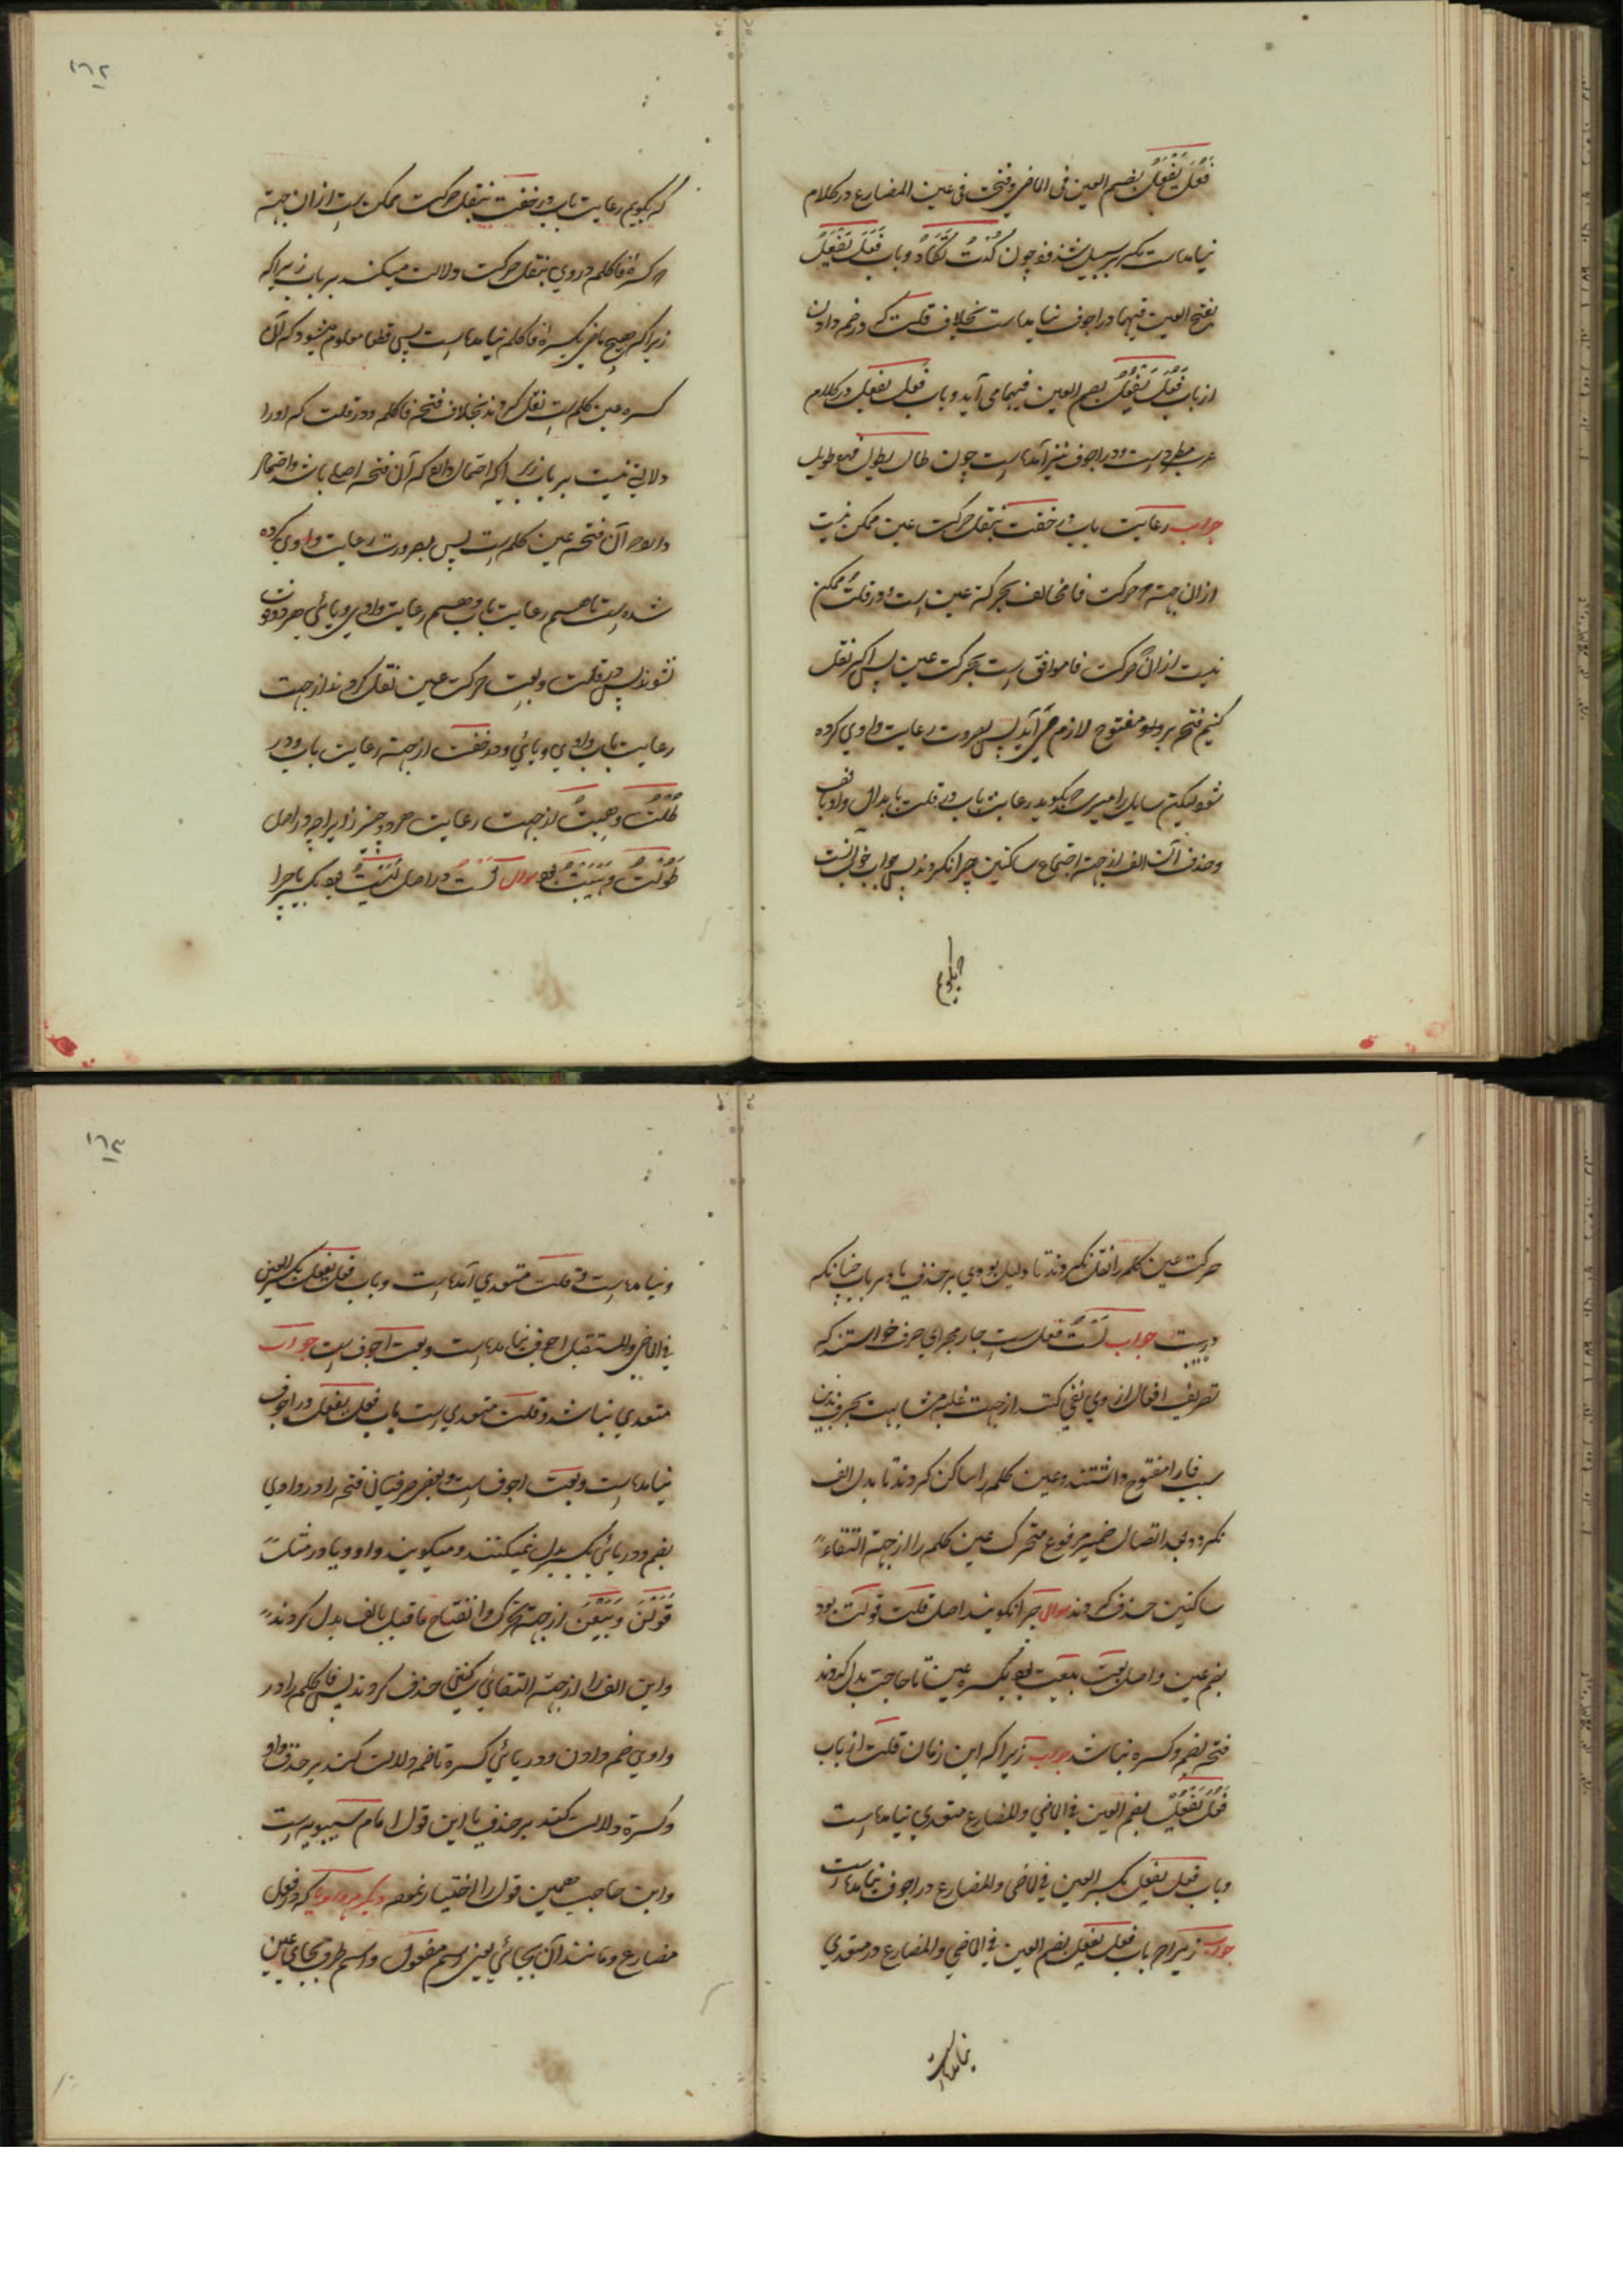 فَعُلَ یَفْعَلُ بضم العین فی الماضی و فتحت فی عین المضارع در کلام
نیامده است مکر بر سبیل شذوذ چون كُدْتُ تَكَادُ و باب فَعَلَ یَفْعَلُ
بفتح العین فیهما در اجوف نیامده است بخلاف قلت که در ضم دادن
از باب فَعُلَ یَفْعُلُ بضم العین فیهما می آید و باب فعل یفعل در کلام
عرب مطرد است و در اجوف نیز آمده است چون طال یطول فهو طویل
جواب رعایت باب در خفت بنقل حرکت عین ممکن نیست
از ان جهة که حرکت فا مخالف بحرکة عین است و در قلت ممکن
نیست از ان که حرکت فا موافق است بحرکت عین پس اکر نقل
کنیم فتحه بر واو مفتوح لازم می آید پس بضرورت رعایت واوی کرده
شود لیکن سایل را میرسد که بکوید رعایت باب در قلت بابدال واو بالف
و حذف آن الف از جهة اجتماع ساکنین چرا نکردند پس جواب خواست
که بکویم رعایت باب در خفت بنقل حرکت ممکن است از ان جهة
که کسرهٔ فا کلمه در وی بنقل حرکت دلالت میکند بر باب زیرا که
زیرا که هیچ ماضی بکسرهٔ فا کلمه نیامده است پس قطعا معلوم میشود که آن
کسره عین کلمه است نقل کردند بخلاف فتحهٔ فا کلمه در قلت که او را
دلالتی نیست بر باب زیرا که احتمال دارد که آن فتحه اصلی باشد و احتمال
دارد که آن فتحه عین کلمه است پس بضرورت رعایت واوی کرده
شده است تا هم رعایت باب و هم رعایت واوی و یائی هر دو فوت
نشوند پس در قلت و بعت حرکت عین نقل کردند از جهت
رعایت باب واوی و یائی و در خفت از جهة رعایت باب و در
طُلْتُ و هِبْتُ از جهت رعایت هر دو چیز زیرا که در اصل
طَوُلْتُ و هَیِبْتُ بود سوال لَسْتُ در اصل لَیِسْتُ بود بکسر یا چرا
۱۶۲
حرکت عین کلمه را نقل نکردند تا دلیل بودی بر حذف یا و بر باب چنانکه
درست جواب لَسْتُ فعل است جار مجرای حرف خواستند که
تصریف افعال از وی نفی کنند از جهت غلبه مشابهت بحرف بدین
سبب فا را مفتوح داشتند و عین کلمه را ساکن کردند تا بدل الف
نکردد و بعد اتصال ضمیر مرفوع متحرک عین کلمه را از جهة التقاء
ساکنین حذف کردند سوال چرا نکویند اصل قلت قولت بود
بضم عین و اصل بعت بیعت بود بکسره عین تا حاجت بدل کردن
فتحه بضم و کسره نباشد جواب زیرا که این زمان قلت از باب
فَعُلَ یَفْعُلُ بضم العین فی الماضی و المضارع متعدی نیامده است
و باب فعل یفعل بکسر العین فی الماضی و المضارع در اجوف نیامده است
جواب زیرا که باب فعل یفعل بضم العین فی الماضی و المضارع در متعدی
نیامده است
و نیامده است و قلت متعدی آمده است و باب فعل یفعل بکسر العین
فی الماضی و المستقبل اجوف نیامده است و بعت اجوف است جواب
متعدی نباشد و قلت متعدی است باب فعل یفعل در اجوف
نیامده است و بعت اجوف است و بعض صرفیانی فتحه را در واوی
بضم و در یائی بکسر بدل نمیکنند و میکویند واو و یا در مثل
قَوَلْنَ و بَیَعْنَ از جهة تحرک و انفتاح ماقبل بالف بدل کردند
و این الف را از جهة التقائی ساکنین حذف کردند پس فا کلمه را در
واوی ضم دادن و در یائی کسره تا ضم دلالت کند بر حذف واو
و کسره دلالت کند بر حذف یا این قول امام سیبویه است
و ابن حاجب همین قول را اختیار نموده که در فعل
مضارع و مانند آن بجائی یعنی اسم مفعول و اسم ظرف بجای عین
۱۶۳